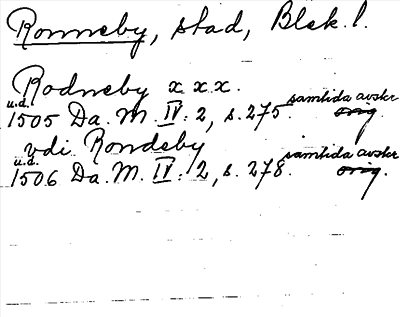 Ronneby, stad, Blek. l.
Rodneby x x x.
u.d. samtida avskr
1505 Da. M. IV: 2, s. 275. orig.
vdi Rondeby
u.d. samtida avskr
1506 Da. M. IV: 2, s. 278. orig.